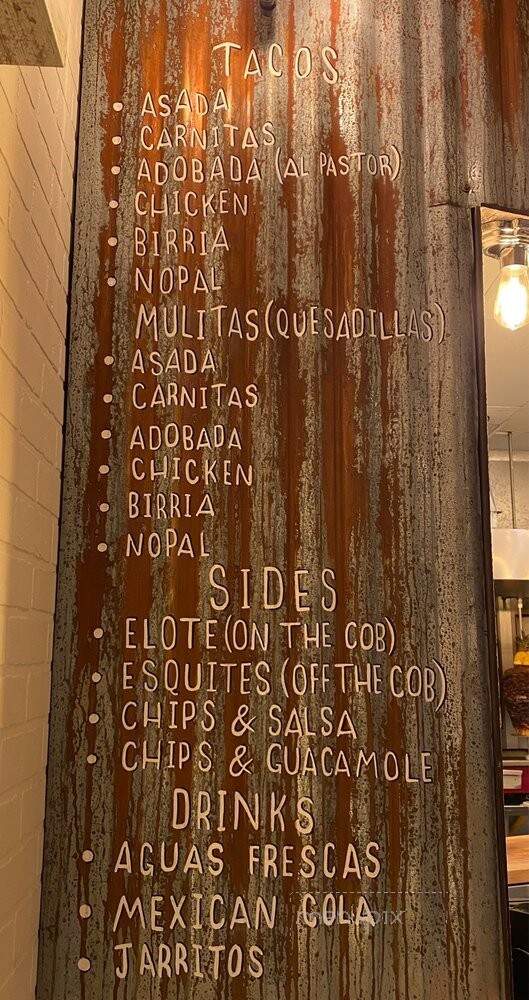 TACOS
• ASADA
• CARNITAS
• ADOBADA (AL PASTOR)
• CHICKEN
• BIRRIA
• NOPAL
MULITAS (QUESADILLAS)
• ASADA
• CARNITAS
• ADOBADA
• CHICKEN
• BIRRIA
• NOPAL
SIDES
• ELOTE (ON THE COB)
• ESQUITES (OFF THE COB)
• CHIPS & SALSA
• CHIPS & GUACAMOLE
DRINKS
• AGUAS FRESCAS
• MEXICAN COLA
• JARRITOS